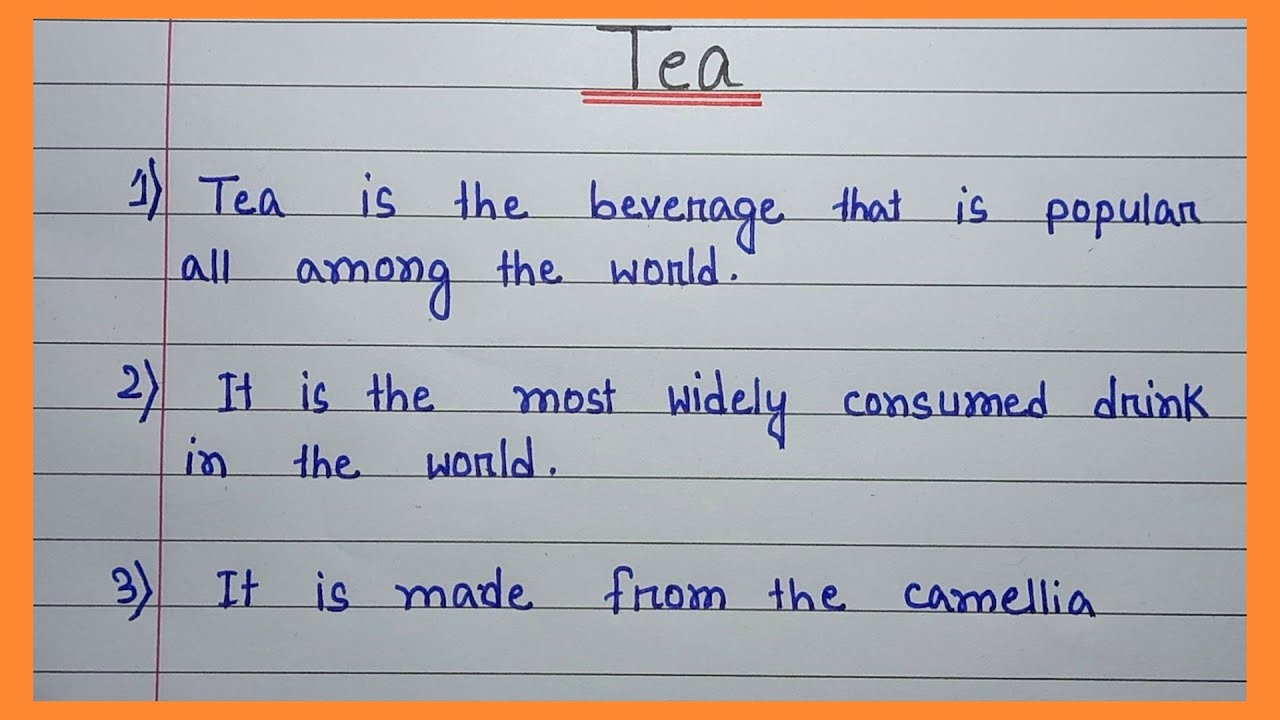 Tea
1) Tea is the beverage that is popular
all among the world.
2) It is the most widely consumed drink
in the world.
3) It is made from the camellia